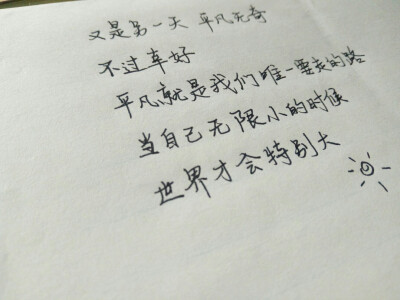 又是另一天 平凡无奇
不过幸好
平凡就是我们唯一要走的路
当自己无限小的时候
世界才会特别大